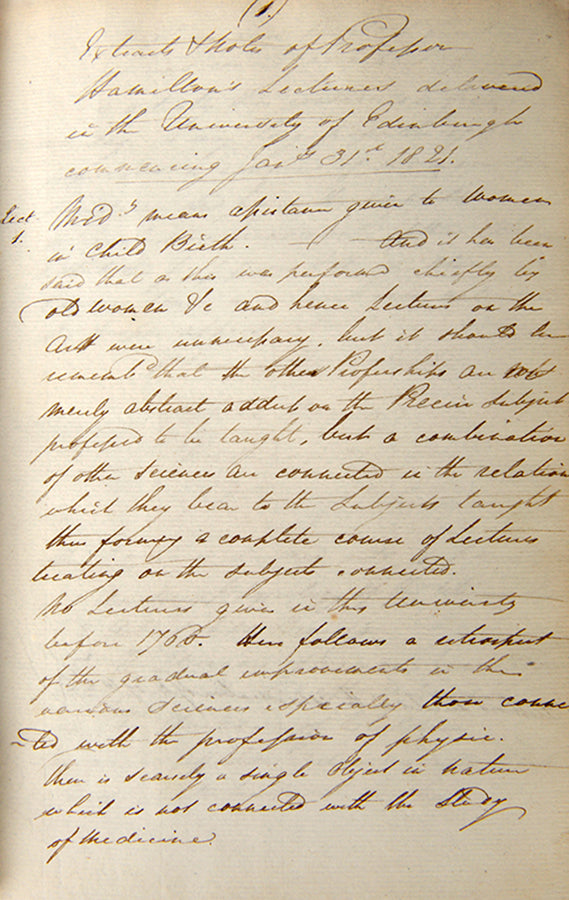 (1.)
Extracts & Notes of Professor
Hamilton's Lectures delivered
in the University of Edinburgh
commencing Jan.y 31st. 1821.
Lect. 1. Mid.y means assistance given to Women
in Child Birth. — And it has been
said that as this was performed chiefly by
old women &c and hence Lectures on the
Art were unnecessary, but it should be
rememb.d that the other Profesships are not
merely abstract on the Precise Subject
professed to be taught, but a combination
of other Sciences are connected in the relation
which they bear to the Subjects taught
thus forming a complete course of Lectures
treating on the subjects connected.
No Lectures given in this University
before 1760. Here follows a retrospect
of the gradual improvements in the
various Sciences especially those conne
-ted with the profession of physic.
there is scarcely a single Object in Nature
which is not connected with the Study
of Medicine.